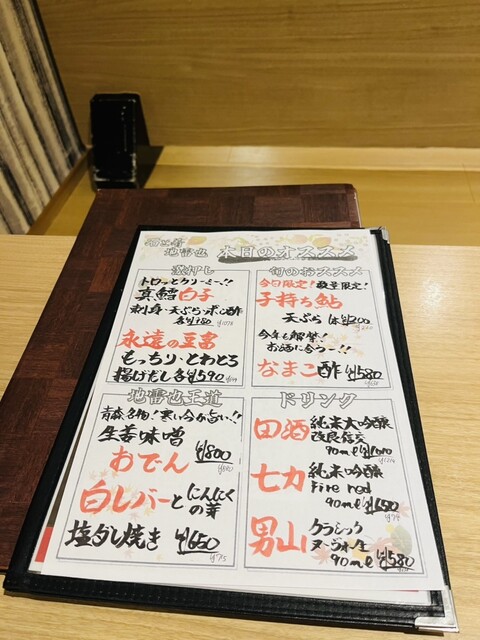 地雷也 本日のオススメ
激押し
トロっとクリーミー!!
真鱈白子
刺身・天ぷら・ポン酢
各¥980
¥1078
永遠の豆富
もっちり・とわとろ
揚げだし各¥590
旬のおススメ
今日限定!数量限定!
子持ち鮎
天ぷら 1本¥1200
今年も解禁!
お酒に合う〜!!
なまこ酢 ¥580
地雷也王道
青森名物!寒い今が旨い!!
生姜味噌
おでん ¥800
白レバーとにんにくの芽
塩ダレ焼き ¥650
ドリンク
田酒 純米大吟醸
改良信交
90ml ¥1010
七力 純米吟醸
Fire red
90ml ¥650
男山 クラシック
ヌーヴォー生
90ml ¥580